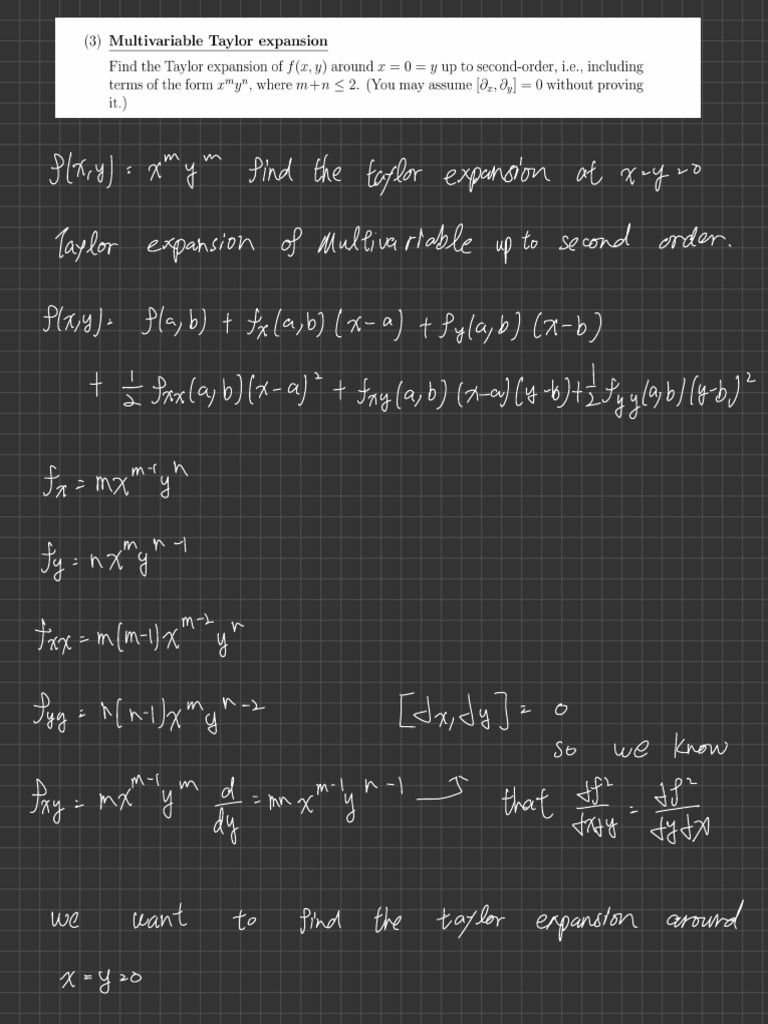 (3) Multivariable Taylor expansion
Find the Taylor expansion of f(x, y) around x = 0 = y up to second-order, i.e., including
terms of the form xᵐyⁿ, where m+n ≤ 2. (You may assume [∂ₓ, ∂ᵧ] = 0 without proving
it.)
f(x,y) = xᵐ yᵐ find the taylor expansion at x=y=0
Taylor expansion of Multivariable up to second order.
f(x,y) = f(a,b) + fₓ(a,b)(x-a) + fᵧ(a,b)(x-b)
+ 1/2 fₓₓ(a,b)(x-a)² + fₓᵧ(a,b)(x-a)(y-b) + 1/2 fᵧᵧ(a,b)(y-b)²
fₓ = mxᵐ⁻¹yⁿ
fᵧ = nxᵐyⁿ⁻¹
fₓₓ = m(m-1)xᵐ⁻²yⁿ
fᵧᵧ = n(n-1)xᵐyⁿ⁻² [∂x, ∂y] = 0
so we know
fₓᵧ = mxᵐ⁻¹yᵐ d/dy = mn xᵐ⁻¹yⁿ⁻¹ → that ∂f²/∂x∂y = ∂f²/∂y∂x
we want to find the taylor expansion around
x = y = 0